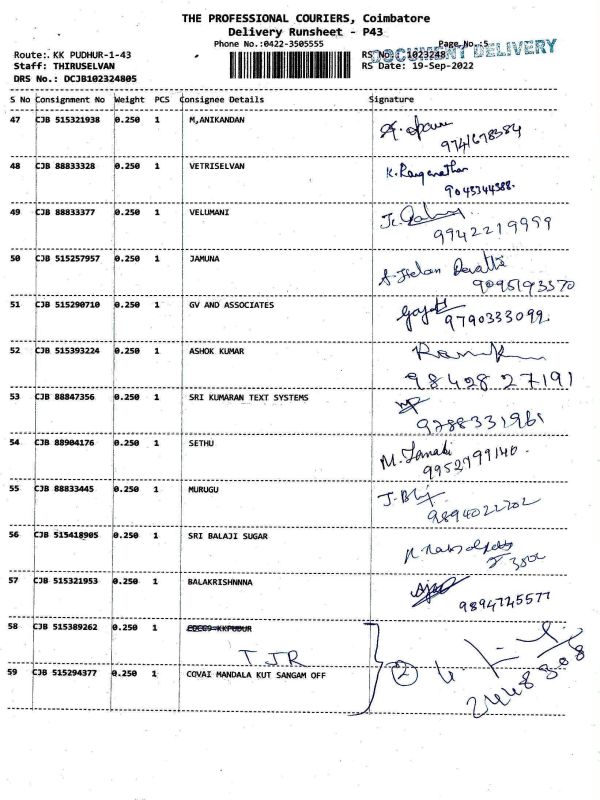 THE PROFESSIONAL COURIERS, Coimbatore
Delivery Runsheet - P43
Phone No.:0422-3505555
Page No.:5
DOCUMENT DELIVERY
Route: KK PUDHUR-1-43
RS No.: 1023248
Staff: THIRUSELVAN
RS Date: 19-Sep-2022
DRS No.: DCJB102324805
S No Consignment No Weight PCS Consignee Details Signature
47 CJB 515321938 0.250 1 M,ANIKANDAN
9741678384
48 CJB 88833328 0.250 1 VETRISELVAN K. Ranganathan
9043344388.
49 CJB 88833377 0.250 1 VELUMANI
9942219999
50 CJB 515257957 0.250 1 JAMUNA
9095193370
51 CJB 515290710 0.250 1 GV AND ASSOCIATES
9790333099.
52 CJB 515393224 0.250 1 ASHOK KUMAR
98428 27191
53 CJB 88847356 0.250 1 SRI KUMARAN TEXT SYSTEMS
9788331961
54 CJB 88904176 0.250 1 SETHU
9952799140.
55 CJB 88833445 0.250 1 MURUGU
9894022202
56 CJB 515418905 0.250 1 SRI BALAJI SUGAR
57 CJB 515321953 0.250 1 BALAKRISHNNNA
9894745577
58 CJB 515389262 0.250 1
TJR
2
59 CJB 515294377 0.250 1 COVAI MANDALA KUT SANGAM OFF